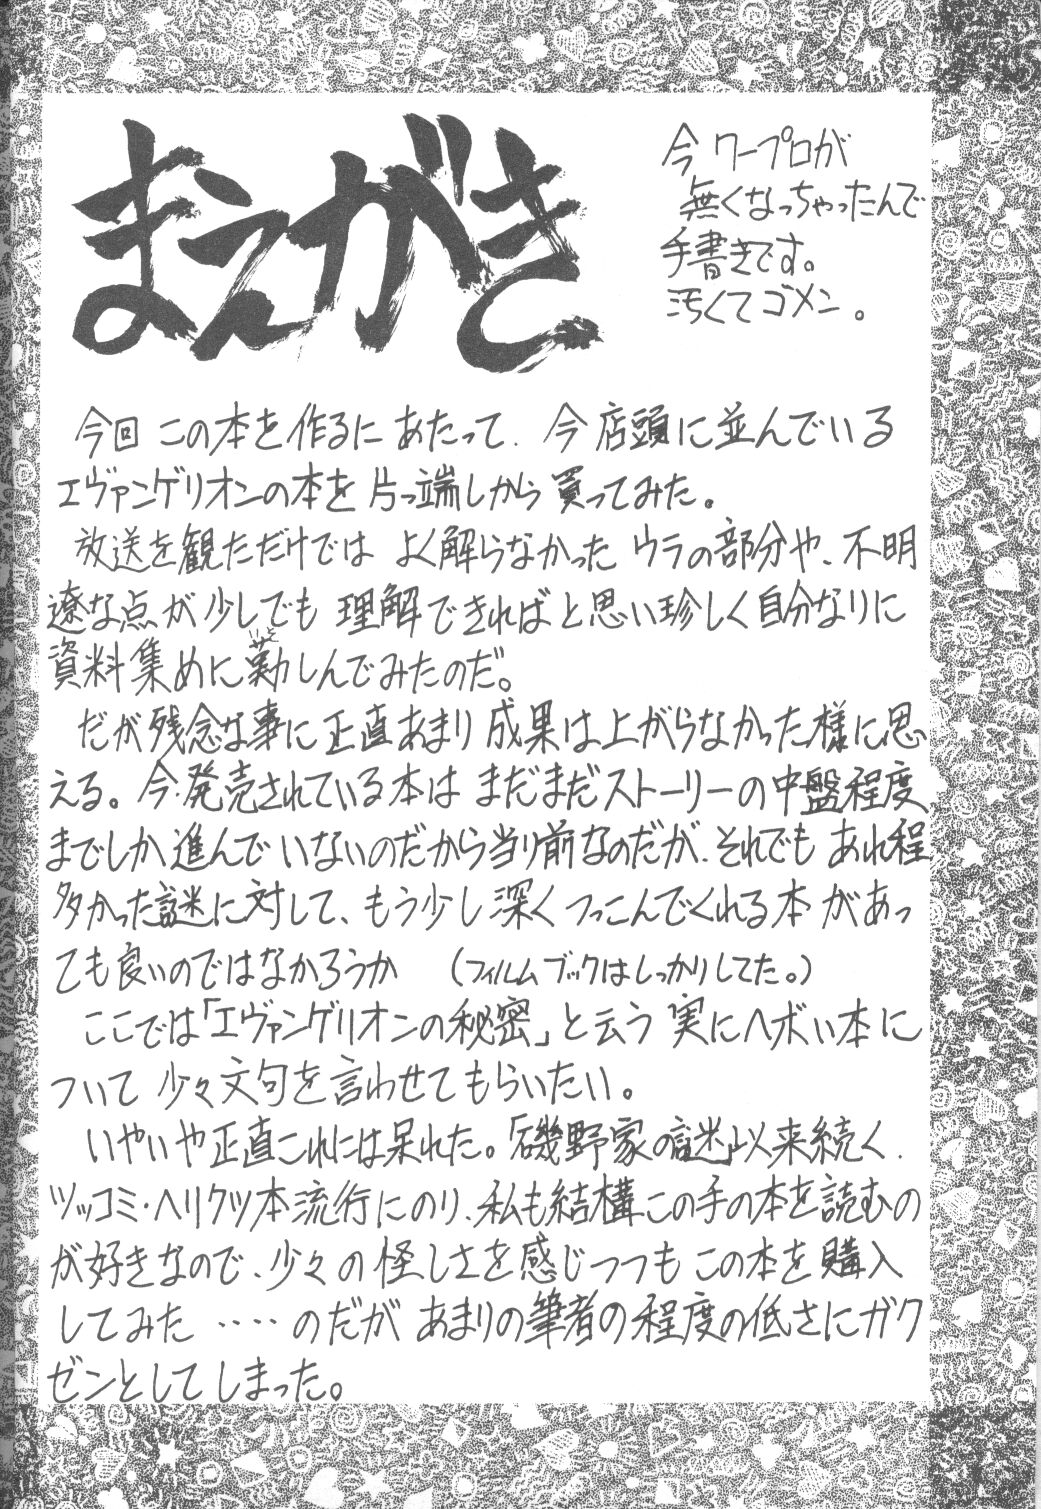 まえがき
今ワープロが
無くなっちゃったんで
手書きです。
汚くてゴメン。
今回この本を作るにあたって、今店頭に並んでいる
エヴァンゲリオンの本を片っ端しから買ってみた。
放送を観ただけでは よく解らなかったウラの部分や、不明
遼な点が少しでも理解できればと思い珍しく自分なりに
資料集めに勤しんでみたのだ。
いそ
だが残念な事に正直あまり成果は上がらなかった様に思
える。今、発売されている本はまだまだストーリーの中盤程度
までしか進んでいないのだから当り前なのだが、それでもあれ程
多かった謎に対して、もう少し深くつっこんでくれる本があっ
ても良いのではなかろうか (フィルムブックはしっかりしてた。)
ここでは「エヴァンゲリオンの秘密」と云う実にヘボい本に
ついて少々文句を言わせてもらいたい。
いやいや正直これには呆れた。「磯野家の謎」以来続く、
ツッコミ・ヘリクツ本流行にのり、私も結構この手の本を読むの
が好きなので、少々の怪しさを感じつつもこの本を購入
してみた‥‥のだがあまりの筆者の程度の低さにガク
ゼンとしてしまった。